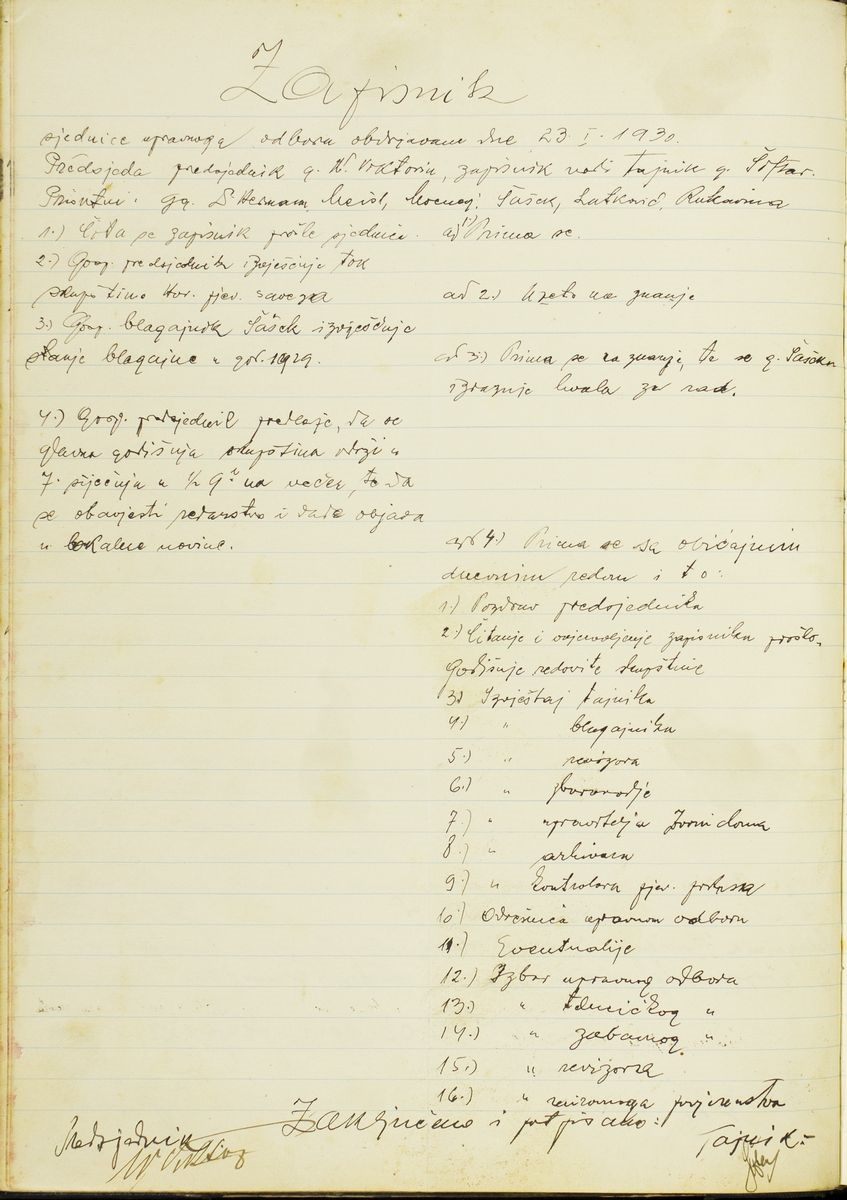 Zapisnik
sjednice upravnoga odbora obdržavane dne 23. I. 1930.
Predsjeda predsjednik g. W. Viktorin, zapisnik vodi tajnik g.
Prisutni: gg. Herman, Meisl, Šašek, Lutković, Rukavina
1.) Čita se zapisnik prošle sjednice. ad 1) Prima se.
2.) Gosp. predsjednik izvješćuje tok
skupštine Hrv. pjev. saveza ad 2.) Uzeto na znanje
3.) Gosp. blagajnik Šašek izvješćuje
stanje blagajne u god. 1929. ad 3.) Prima se na znanje, te se g. Šašeku
izrazuje hvala za rad.
4.) Gosp. predsjednik predlaže, da se
glavna godišnja skupština održi u
7. siječnja u ½ 9 na večer, te da
se obavjesti redarstvo i dade objava
u lokalne novine.
ad 4.) Prima se sa običajnim
dnevnim redom i to:
1.) Pozdrav predsjednika
2.) Čitanje i ovjerovljenje zapisnika prošlo-
godišnje redovite skupštine
3.) Izvještaj tajnika
4.) " blagajnika
5.) " revizora
6.) " zborovodje
7.) " upravitelja doma
8.) " arhivara
9.) " kontrolora pjev.
10.) Odrešnica upravnom odboru
11.) Eventualije
12.) Izbor upravnog odbora
13.) " tehničkog "
14.) " zabavnog "
15.) " revizora
16.) "
Zaključeno i potpisano:
Predsjednik Tajnik:
W Viktorin